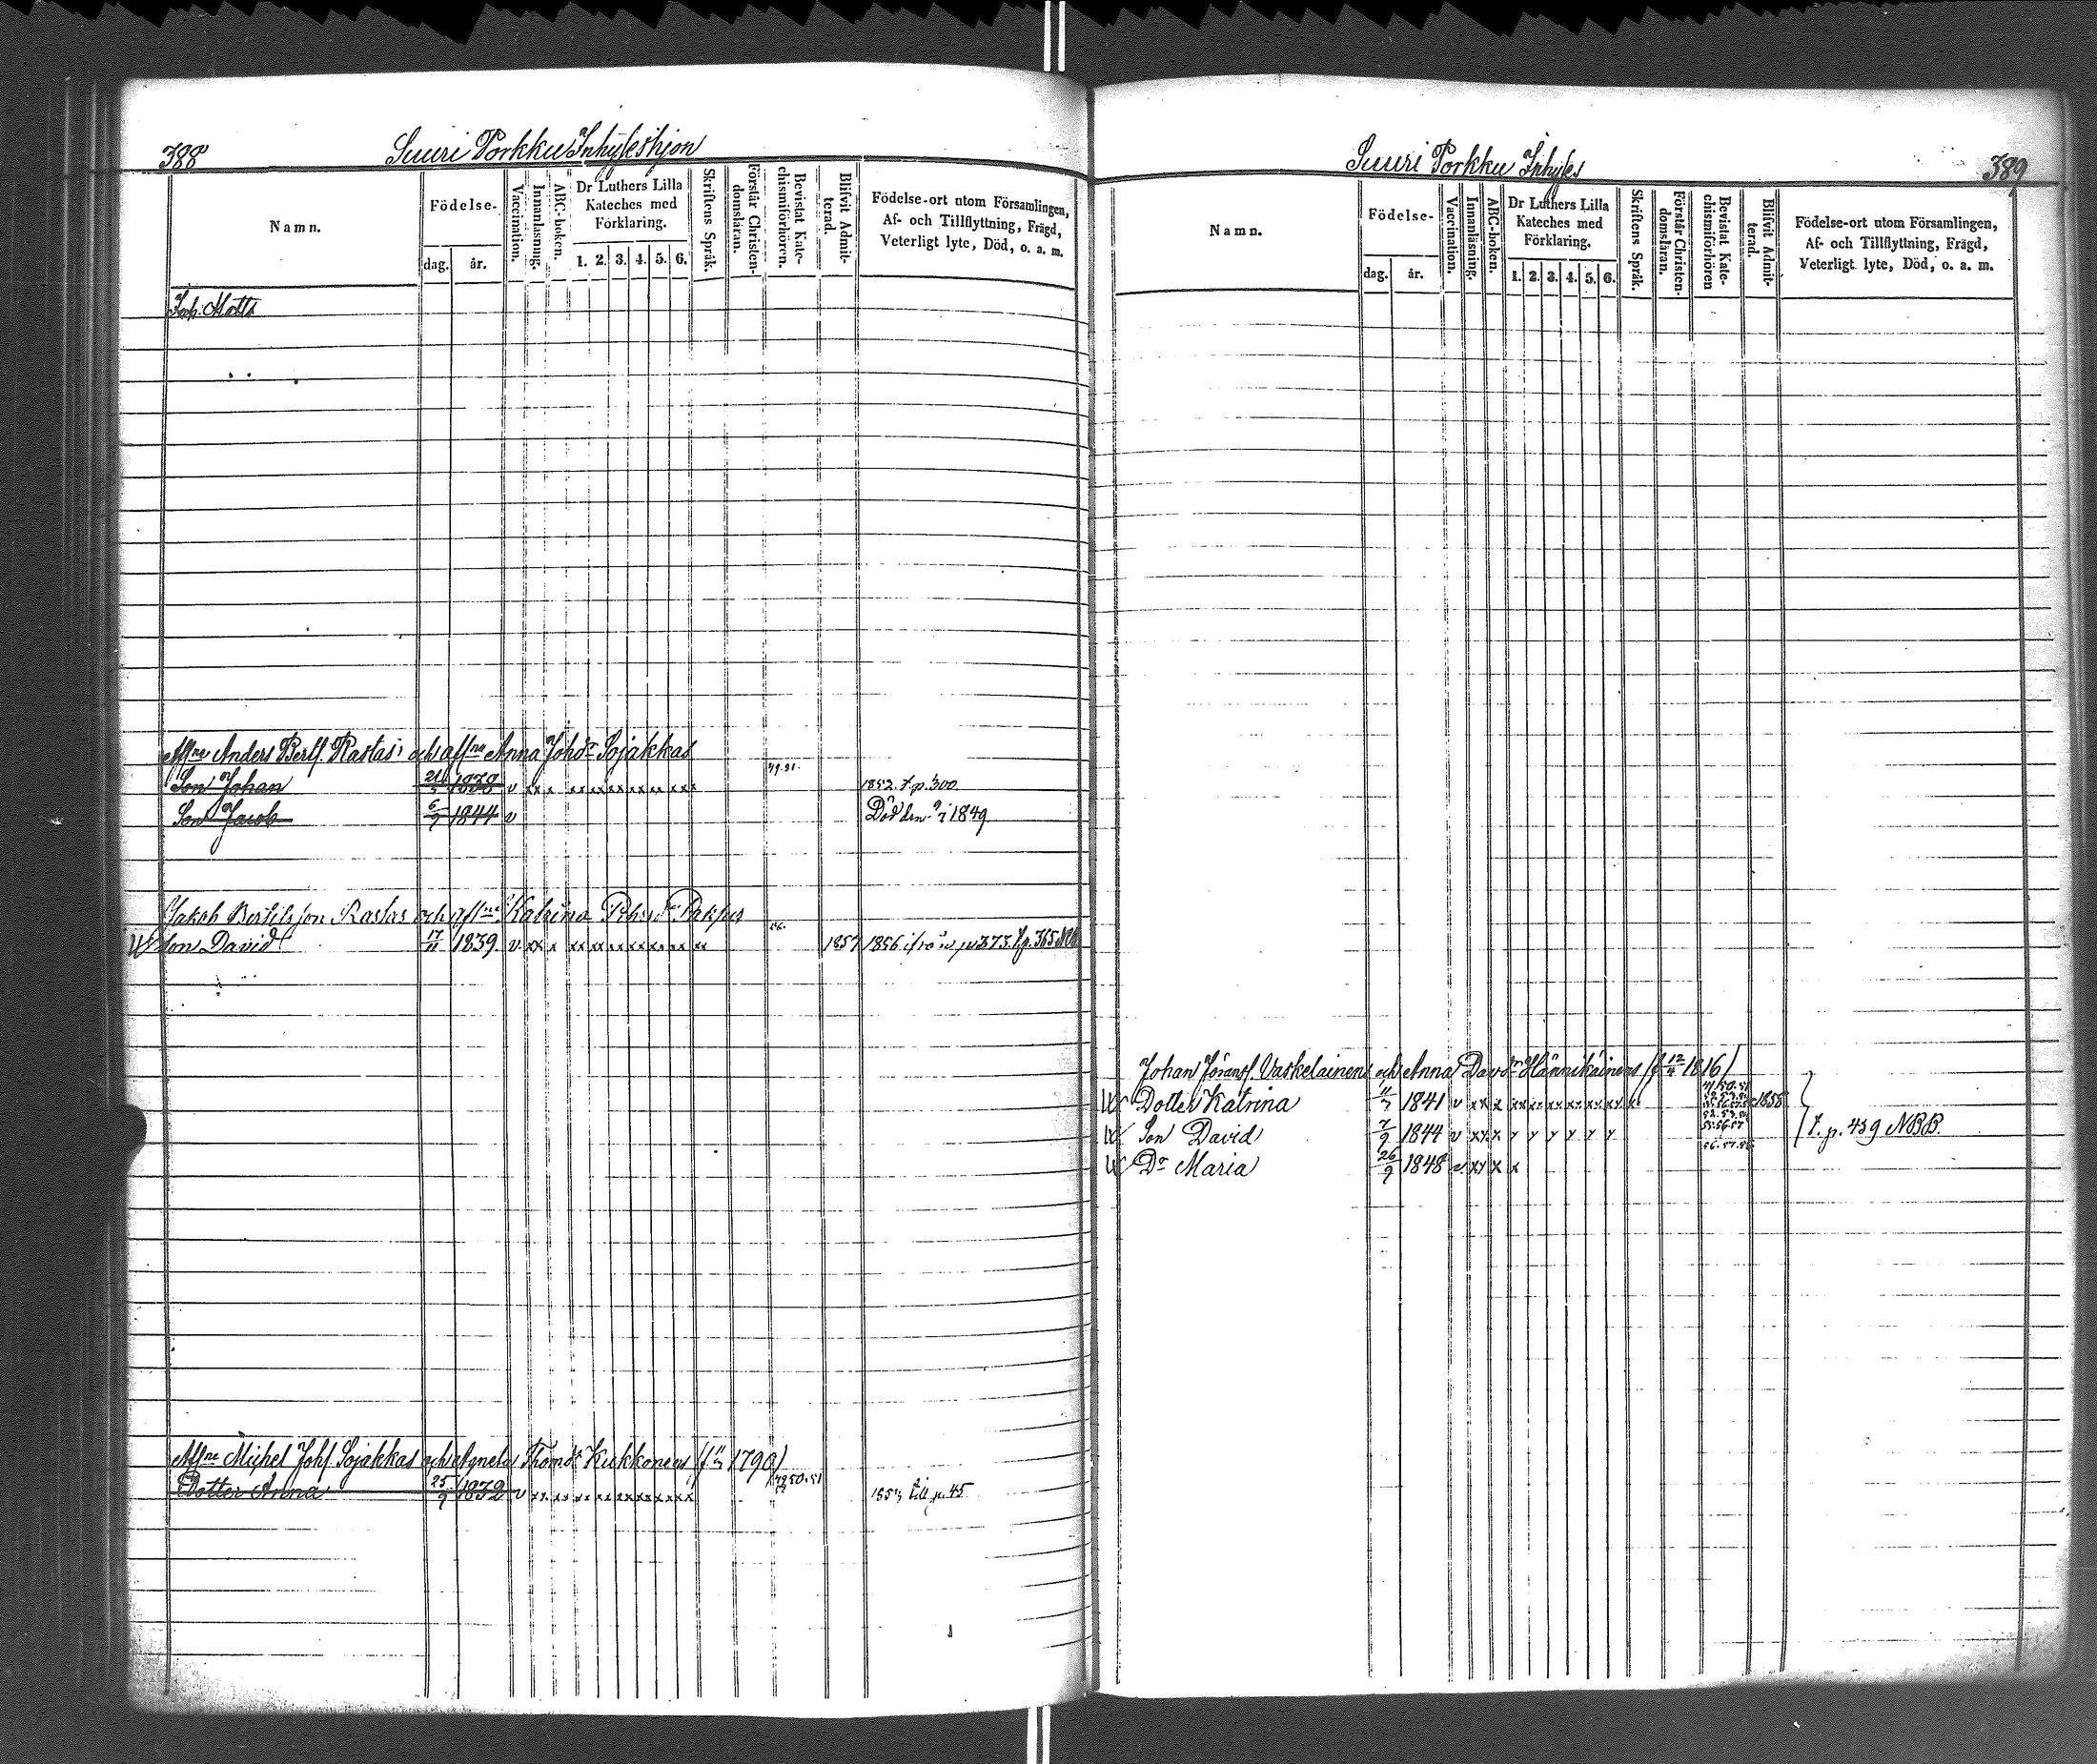 388
Suuri Porkku Inhyseshjon
Namn.
Födelse-
dag.
år.
Vaccination.
Innanläsning.
ABC-boken.
Dr Luthers Lilla Kateches med Förklaring.
1. 2. 3. 4. 5. 6.
Skriftens Språk.
Förstår Christendomsläran.
Bevistat Katechismiförhören.
Blifvit Admitterad.
Födelse-ort utom Församlingen,
Af- och Tillflyttning, Frägd,
Veterligt lyte, Död, o. a. m.
Inh. Matts
Anders Bertf. Rastas och afl:ne Anna Johdr Sojakkas
49.51.
Son Johan 21/5 1838 v xx x xx xx xx xx xx xx 1852 t. p. 300
Son Jacob 6/7 1844 v Död den 1849
Jakob Bertilsson Rastas och afl:ne Katrina
56.
Son David 17/11 1839. v xx x xx xx xx xx xx xx xx 1857 1856 ifrån p. 373. t. p. 365 NB
Afl:ne Michel Johf. Sojakkas och Agneta Thomdr Kukkonen 1790)
49 50. 51
Dotter Anna 25/9 1832 v xx xx xx xx xx xx xx xx till p. 45
Suuri Porkku Inhyses
389
Namn.
Födelse-
dag.
år.
Vaccination.
Innanläsning.
ABC-boken.
Dr Luthers Lilla Kateches med Förklaring.
1. 2. 3. 4. 5. 6.
Skriftens Språk.
Förstår Christendomsläran.
Bevistat Katechismiförhören
Blifvit Admitterad.
Födelse-ort utom Församlingen,
Af- och Tillflyttning, Frägd,
Veterligt lyte, Död, o. a. m.
Johan Göransf. Vaskelainen och Anna Davdr Hännikäinen (f 12/11 1816)
Dotter Katrina 11/7 1841 v xx x xx xx xx xx xx xx x 1858
Son David 7/9 1844 v xx x x x x x x x 55.56.57 t. p. 439 NBB.
Dr Maria 26/9 1848 v xx x x 56.57.58